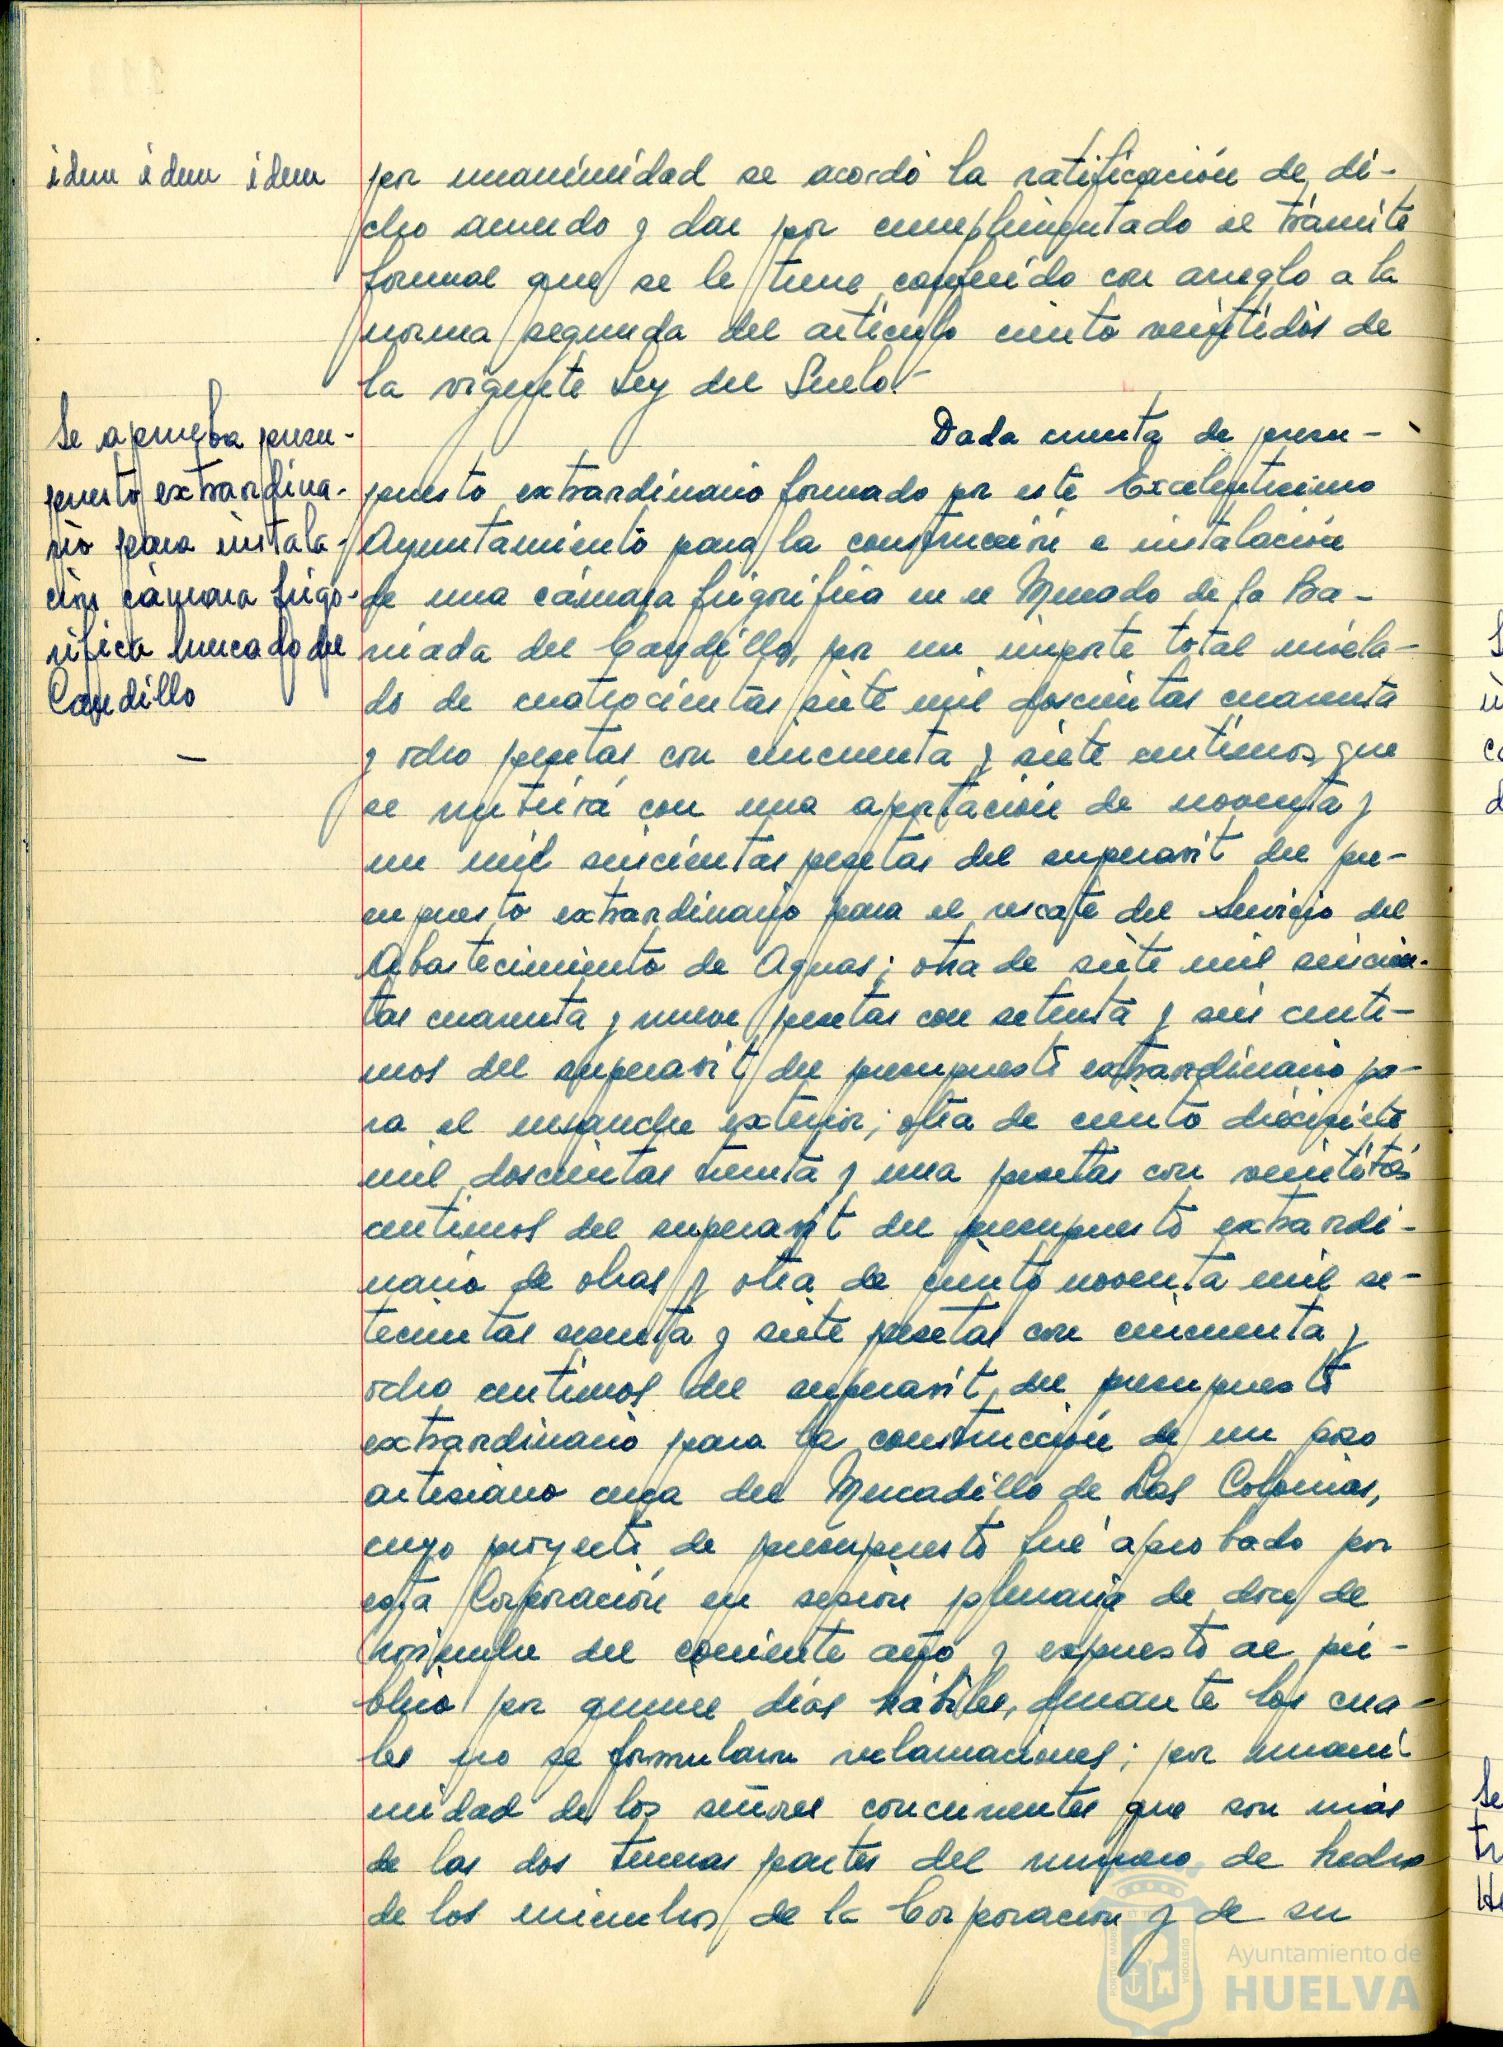 idem idem idem
por unanimidad se acordó la ratificación de di-
cho acuerdo y dar por cumplimentado el trámite
formal que se le tiene conferido con arreglo a la
norma segunda del artículo ciento veintidós de
la vigente Ley del Suelo.-
Se aprueba presu-
puesto extraordina-
rio para instala-
ción cámara frigo-
rífica Mercado del
Cardillo
Dada cuenta de presu-
puesto extraordinario formado por este Excelentísimo
Ayuntamiento para la construcción e instalación
de una cámara frigorífica en el Mercado de la Ba-
rriada del Cardillo, por un importe total nivela-
do de cuatrocientas siete mil doscientas cuarenta
y ocho pesetas con cincuenta y siete centimos, que
se nutrirá con una aportación de noventa y
un mil seiscientas pesetas del superavit del pre-
supuesto extraordinario para el rescate del Servicio del
Abastecimiento de Aguas; otra de siete mil seiscien-
tas cuarenta y nueve pesetas con setenta y seis centi-
mos del superavit del presupuesto extraordinario pa-
ra el ensanche exterior; otra de ciento diecisiete
mil doscientas treinta y una pesetas con veintitrés
centimos del superavit del presupuesto extraordi-
nario de obras y otra de ciento noventa mil se-
tecientas sesenta y siete pesetas con cincuenta y
ocho centimos del superavit del presupuesto
extraordinario para la construcción de un pozo
artesiano cerca del Mercadillo de Las Colonias,
cuyo proyecto de presupuesto fué aprobado por
esta Corporación en sesión plenaria de doce de
Noviembre del corriente año y expuesto al pú-
blico por quince días hábiles, durante los cua-
les no se formularon reclamaciones; por unani-
midad de los señores concurrentes que son más
de las dos terceras partes del numero de hecho
de los miembros de la Corporación y de su
Ayuntamiento de
HUELVA